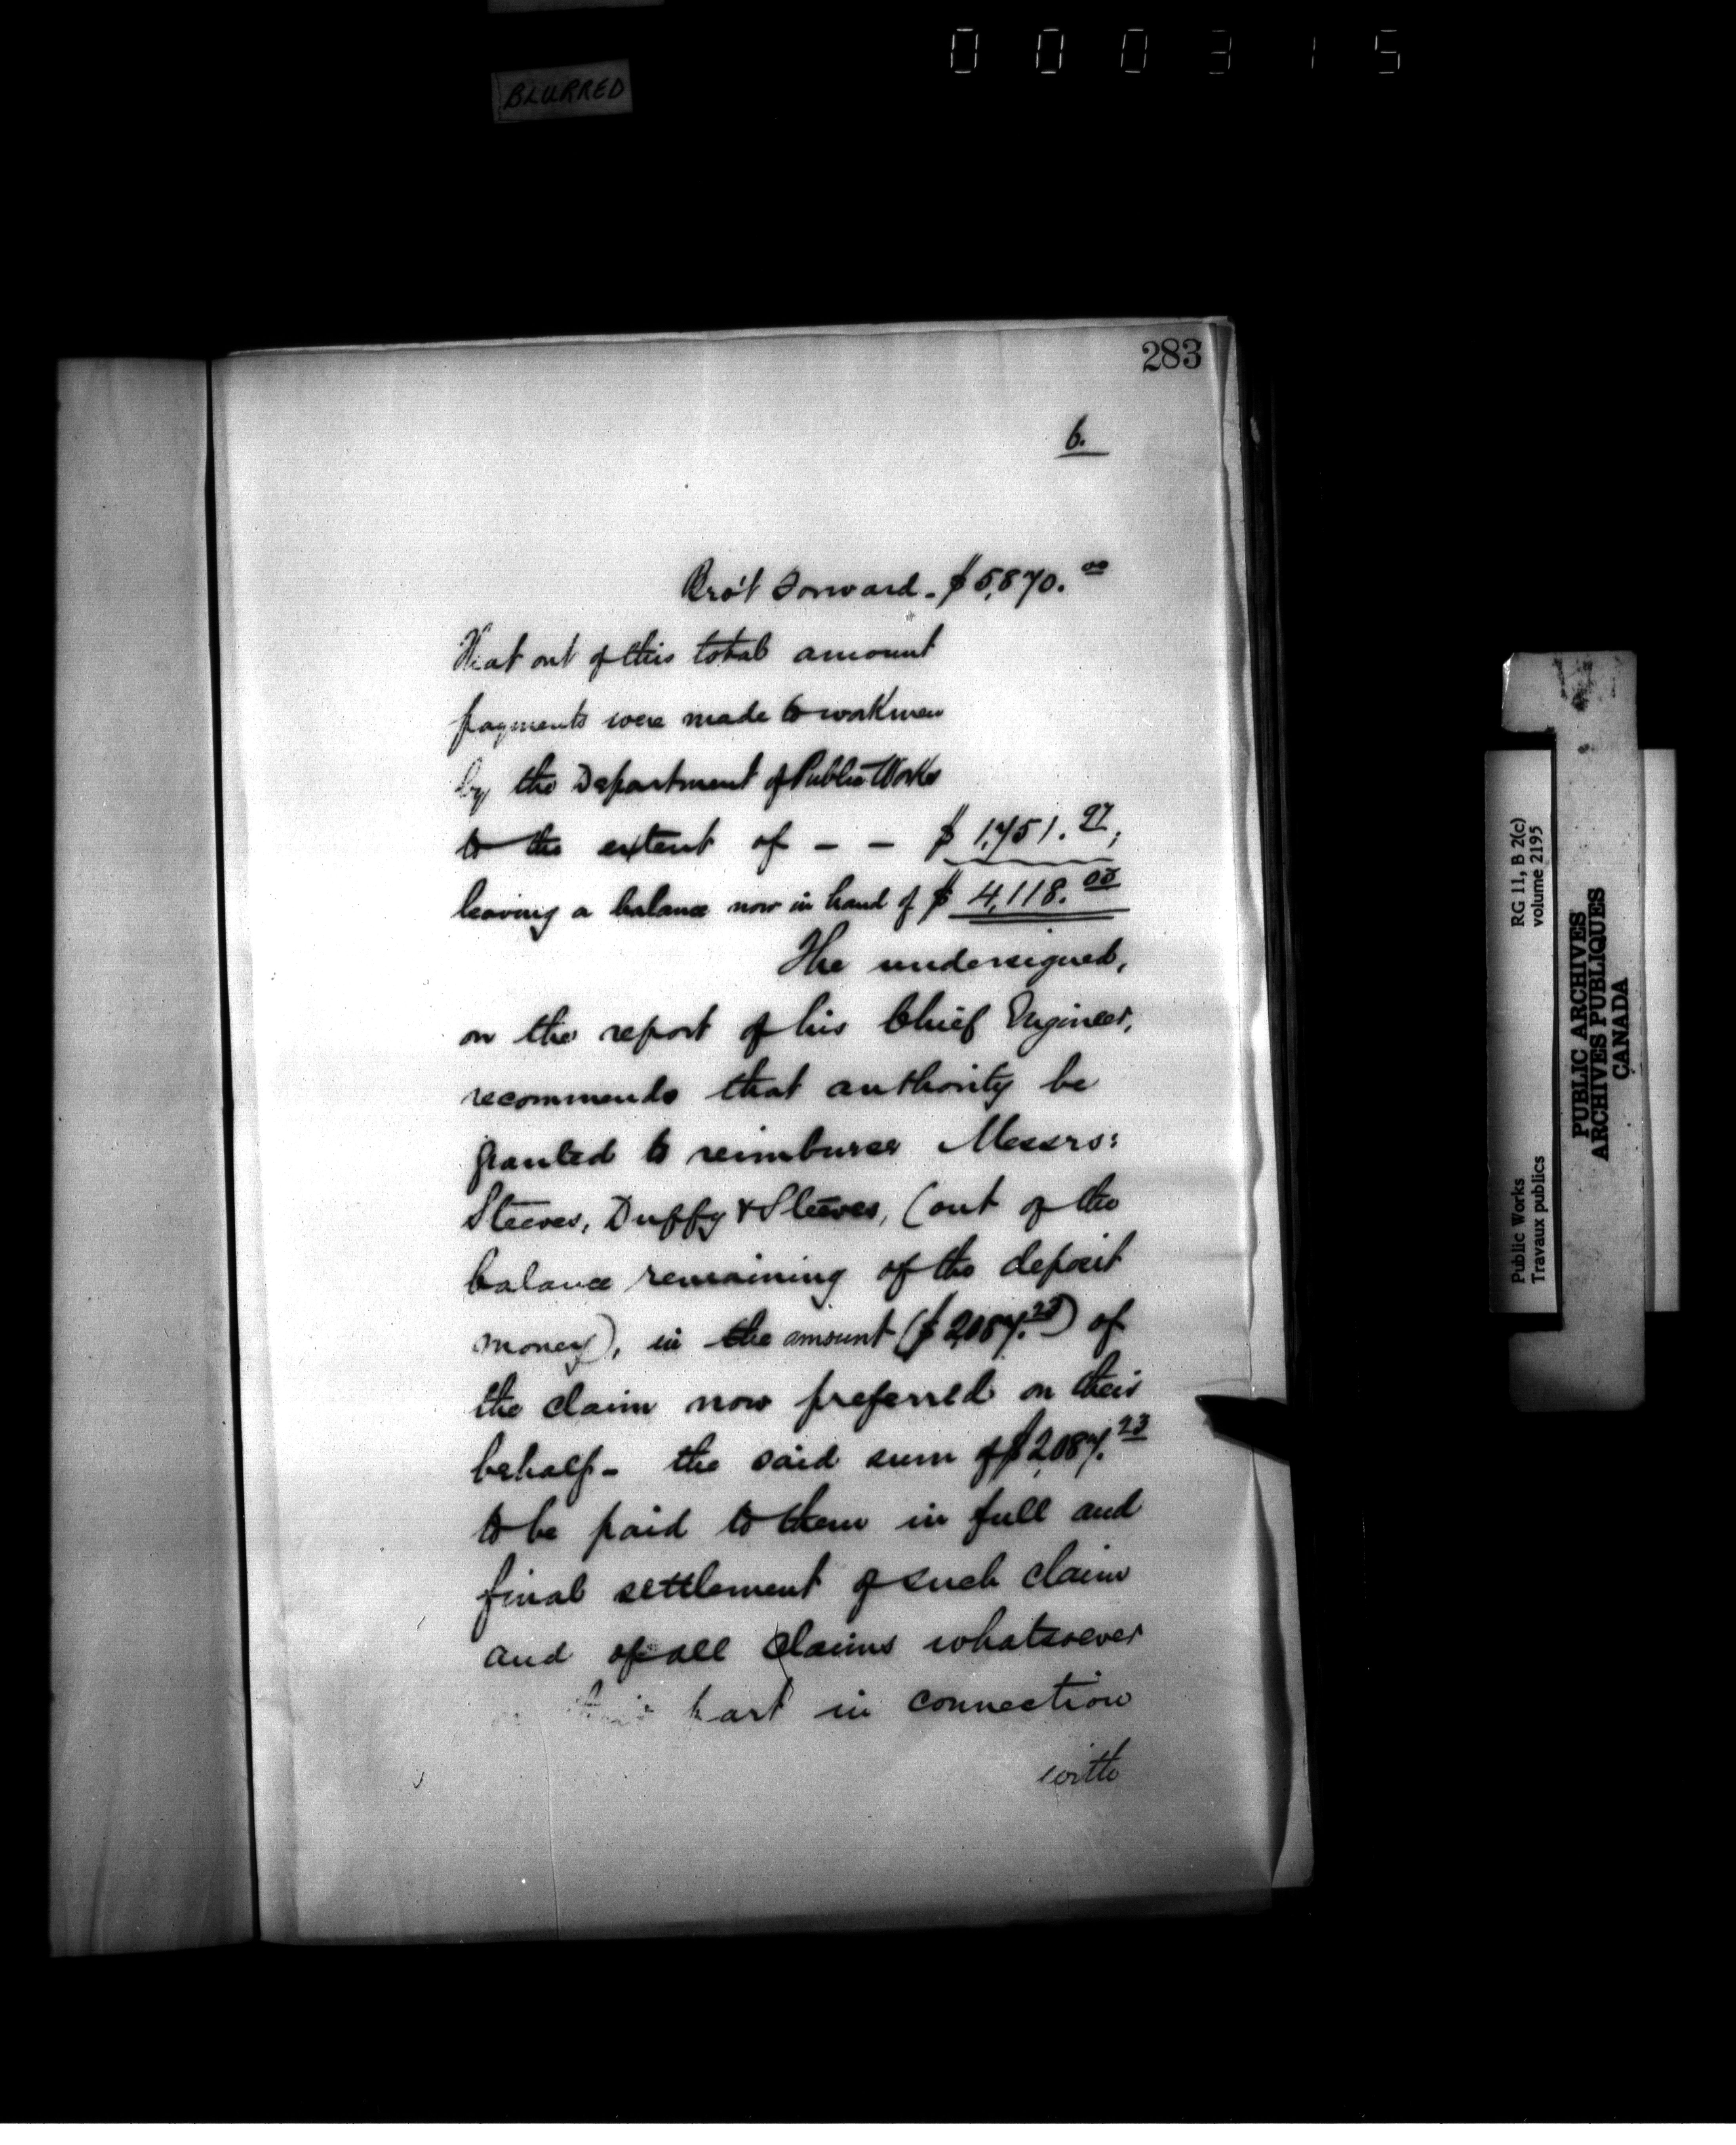 000315
BLURRED
283
6.
Bro't Forward. $5,870.00
That out of this total amount
payments were made to workmen
by the Department of Public Works
to the extent of - - $ 1,751.97;
leaving a balance now in hand of $ 4,118.03
The undersigned,
on the report of his Chief Engineer,
recommends that authority be
granted to reimburse Messrs:
Steeves, Duffy & Steeves, (out of the
balance remaining of the deposit
money), in the amount ($2,087.23) of
the claim now preferred on their
behalf - the said sum of $2,087.23
to be paid to them in full and
final settlement of such claim
and of all claims whatsoever
on their part in connection
with
Public Works
Travaux publics
RG 11, B 2(c)
volume 2195
PUBLIC ARCHIVES
ARCHIVES PUBLIQUES
CANADA